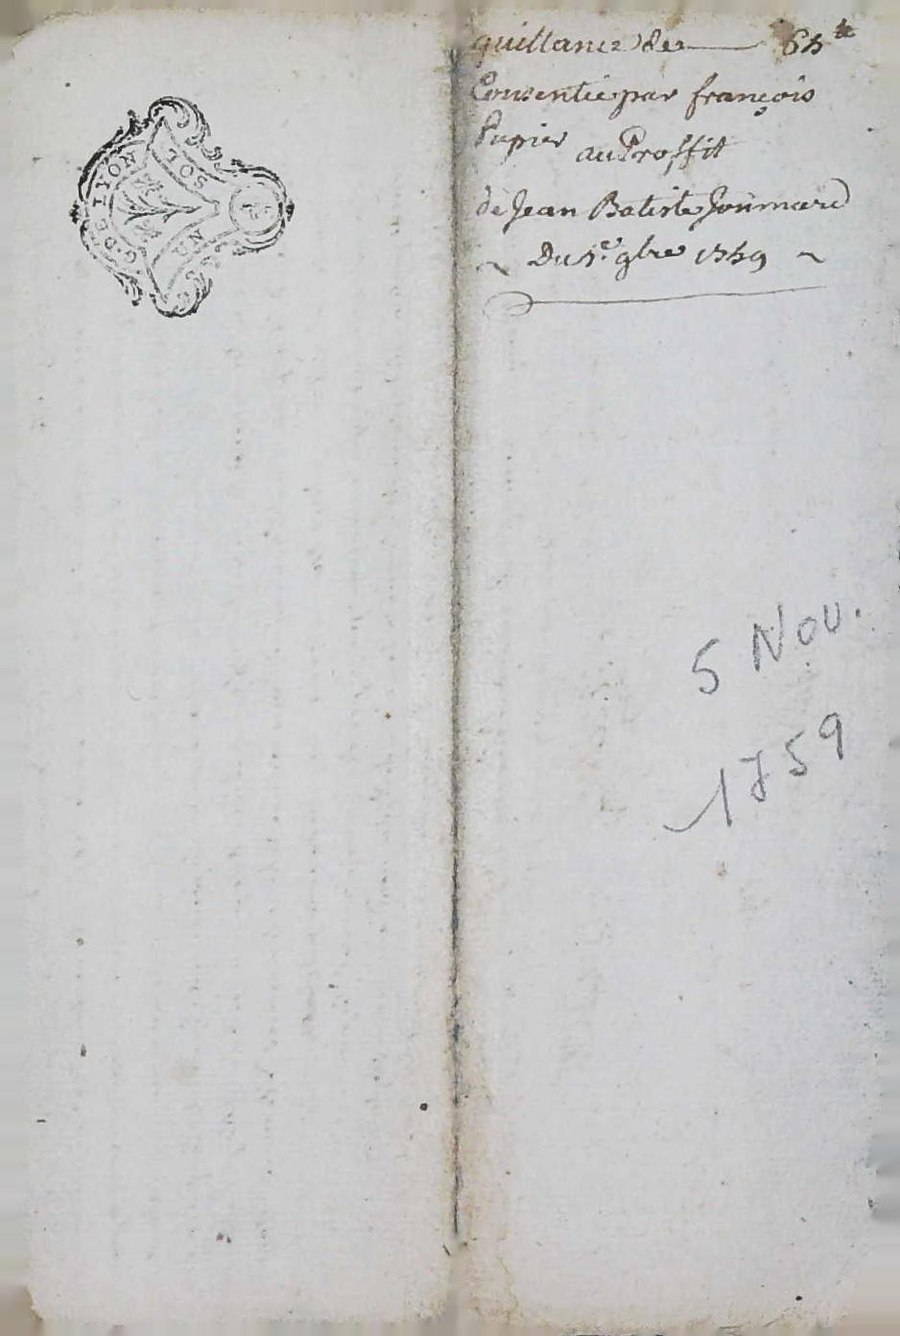 G. DE LYON
SOLS
quittance de 65 ₶
Consentie par françois
Papier au Proffit
de Jean Batiste Joumard
Du 5e 9bre 1759
5 Nov.
1759